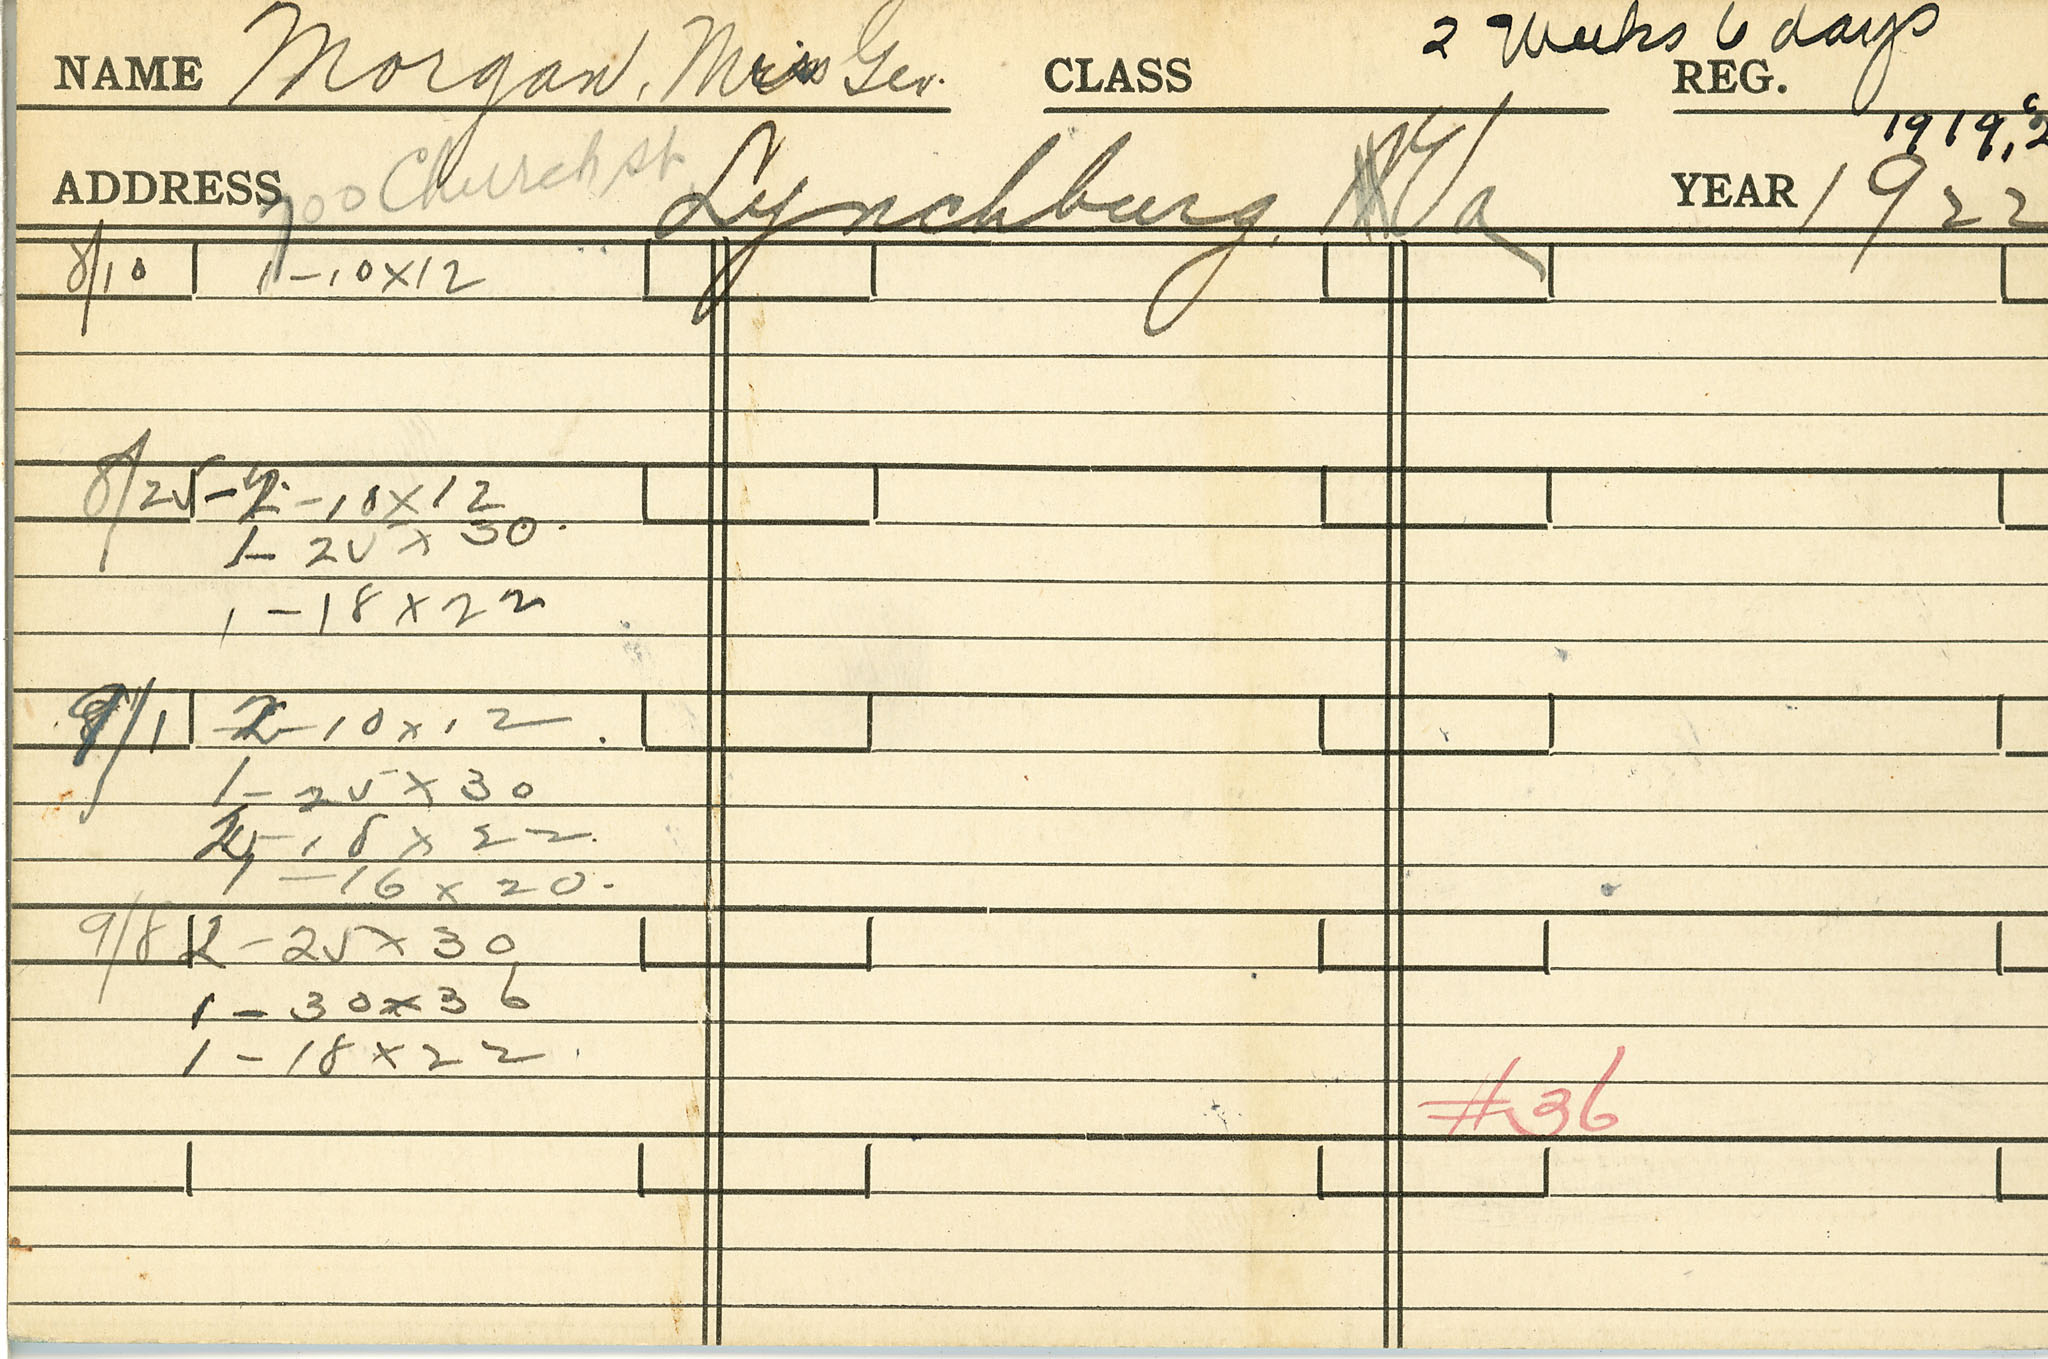 NAME Morgan, Miss Gev. CLASS REG. 2 Weeks 6 days
1919,
ADDRESS 700 Church st. Lynchburg, Va YEAR 1922
8/10 1-10x12
8/25- 2-10x12
1-25x30.
1-18x22
9/1 2-10x12
1-25x30
18x22.
1-16x20.
9/8 2-25x30
1-30x36
1-18x22.
#36